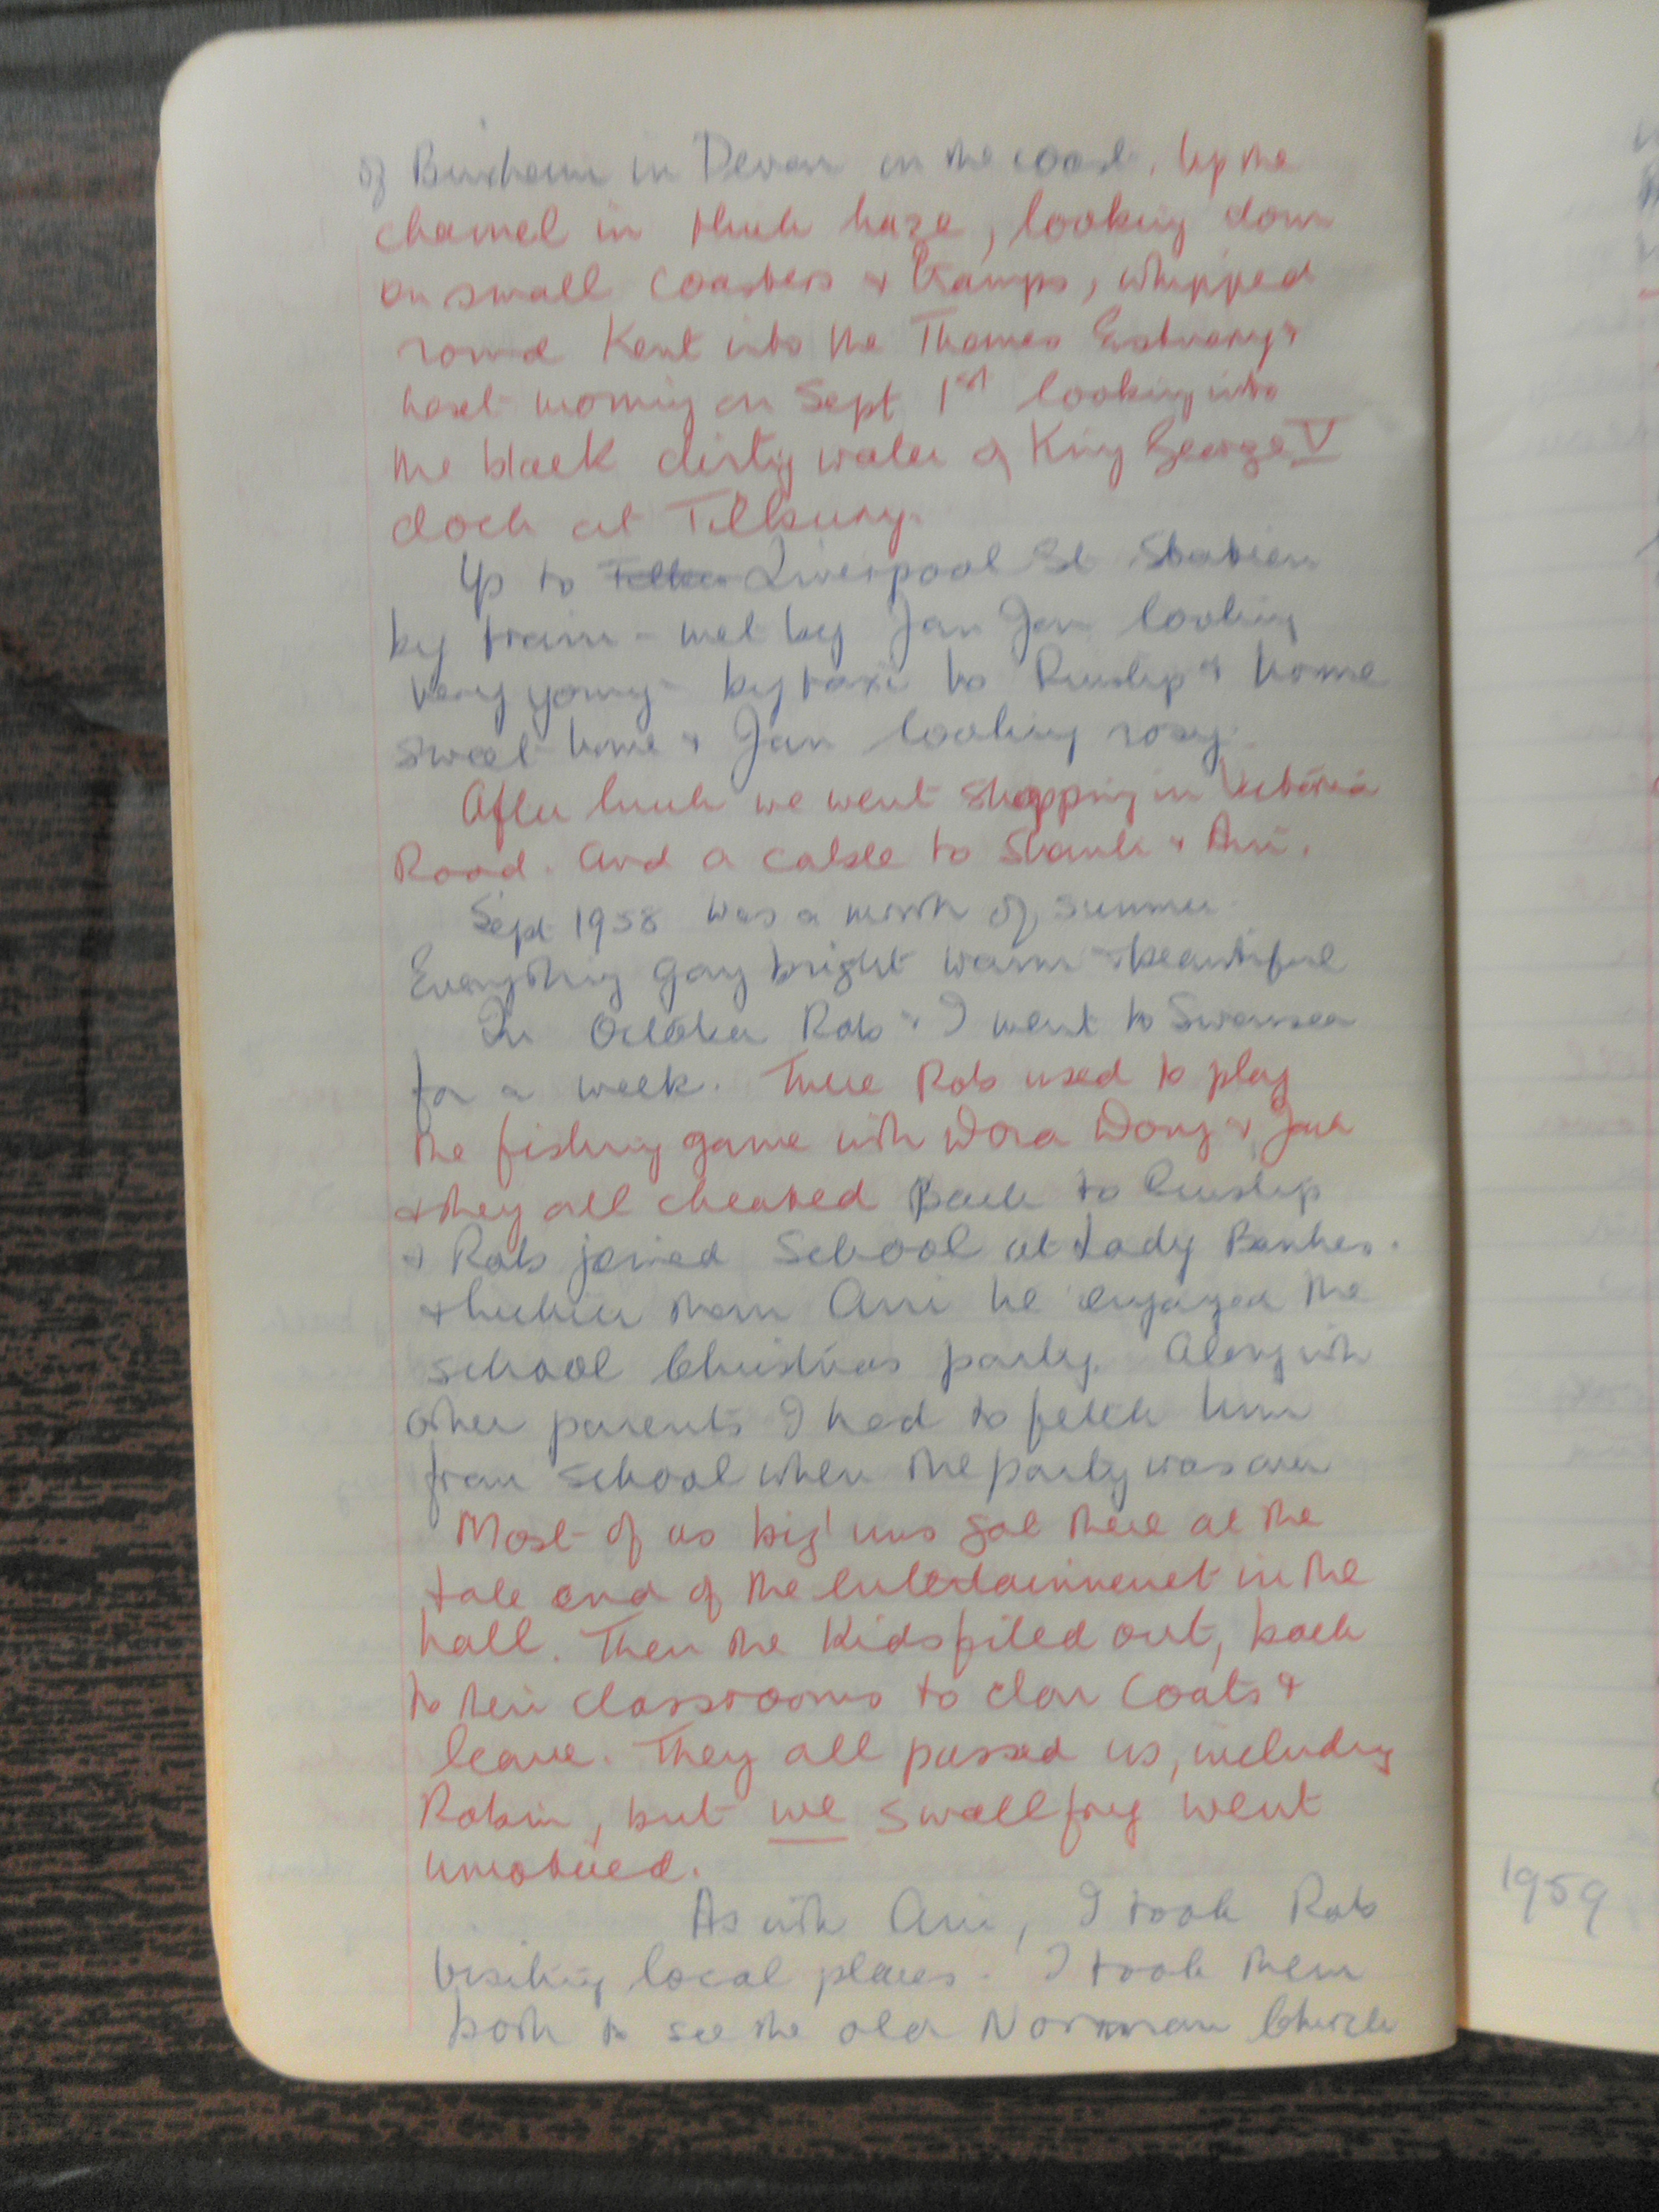 of Brixham in Devon on the coast. Up the
channel in thick haze, looking down
on small coasters & tramps, whipped
round Kent into the Thames Estuary &
next morning on Sept 1st looking into
the black dirty water of King George V
dock at Tilbury.
Up to Liverpool St Station
by train - met by Jan Jan looking
very young - by taxi to Ruislip & home
sweet home & Jan looking rosy.
After lunch we went shopping in Victoria
Road. And a cable to Shank & Ani.
Sept 1958 was a month of summer.
Everything gay bright warm & beautiful
In October Rob & I went to Swansea
for a week. There Rob used to play
the fishing game with Dora Doug & Jack
& they all cheated Back to Ruislip
& Rob joined School at Lady Bankes.
& luckier than Ani he enjoyed the
school Christmas party. Along with
other parents I had to fetch him
from school when the party was over
Most of us big 'uns got there at the
tale end of the entertainment in the
hall. Then the kids filed out, back
to their classrooms to don coats &
leave. They all passed us, including
Robin, but we small fry went
unnoticed.
As with Ani, I took Rob
visiting local places. I took them
both to see the old Norman Church
1959